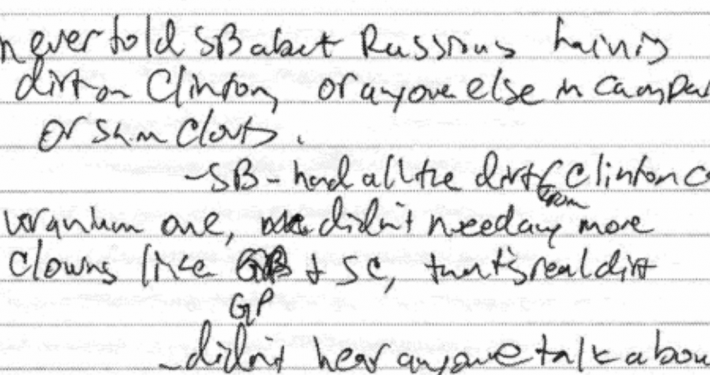 never told SB about Russians having
dirt on Clinton, or anyone else in campai
or Sam Clovis.
- SB - had all the dirt from Clinton C
uranium one, didn't need any more
clowns like GP + SC, that's real dirt
GP
- didn't hear anyone talk abou